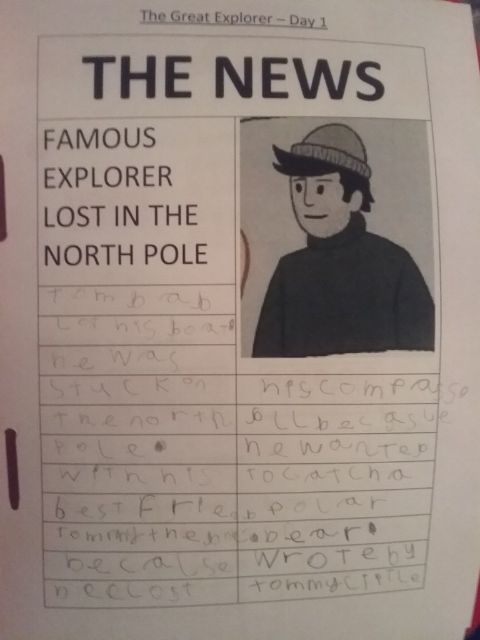 The Great Explorer – Day 1
THE NEWS
FAMOUS
EXPLORER
LOST IN THE
NORTH POLE
his boat
he was
stuck on
the north
pole.
with his
best frie
tommy the
becalse
he lost
his compasse
all becasue
he wanted
to catch a
polar
bear.
wrote by
tommy little